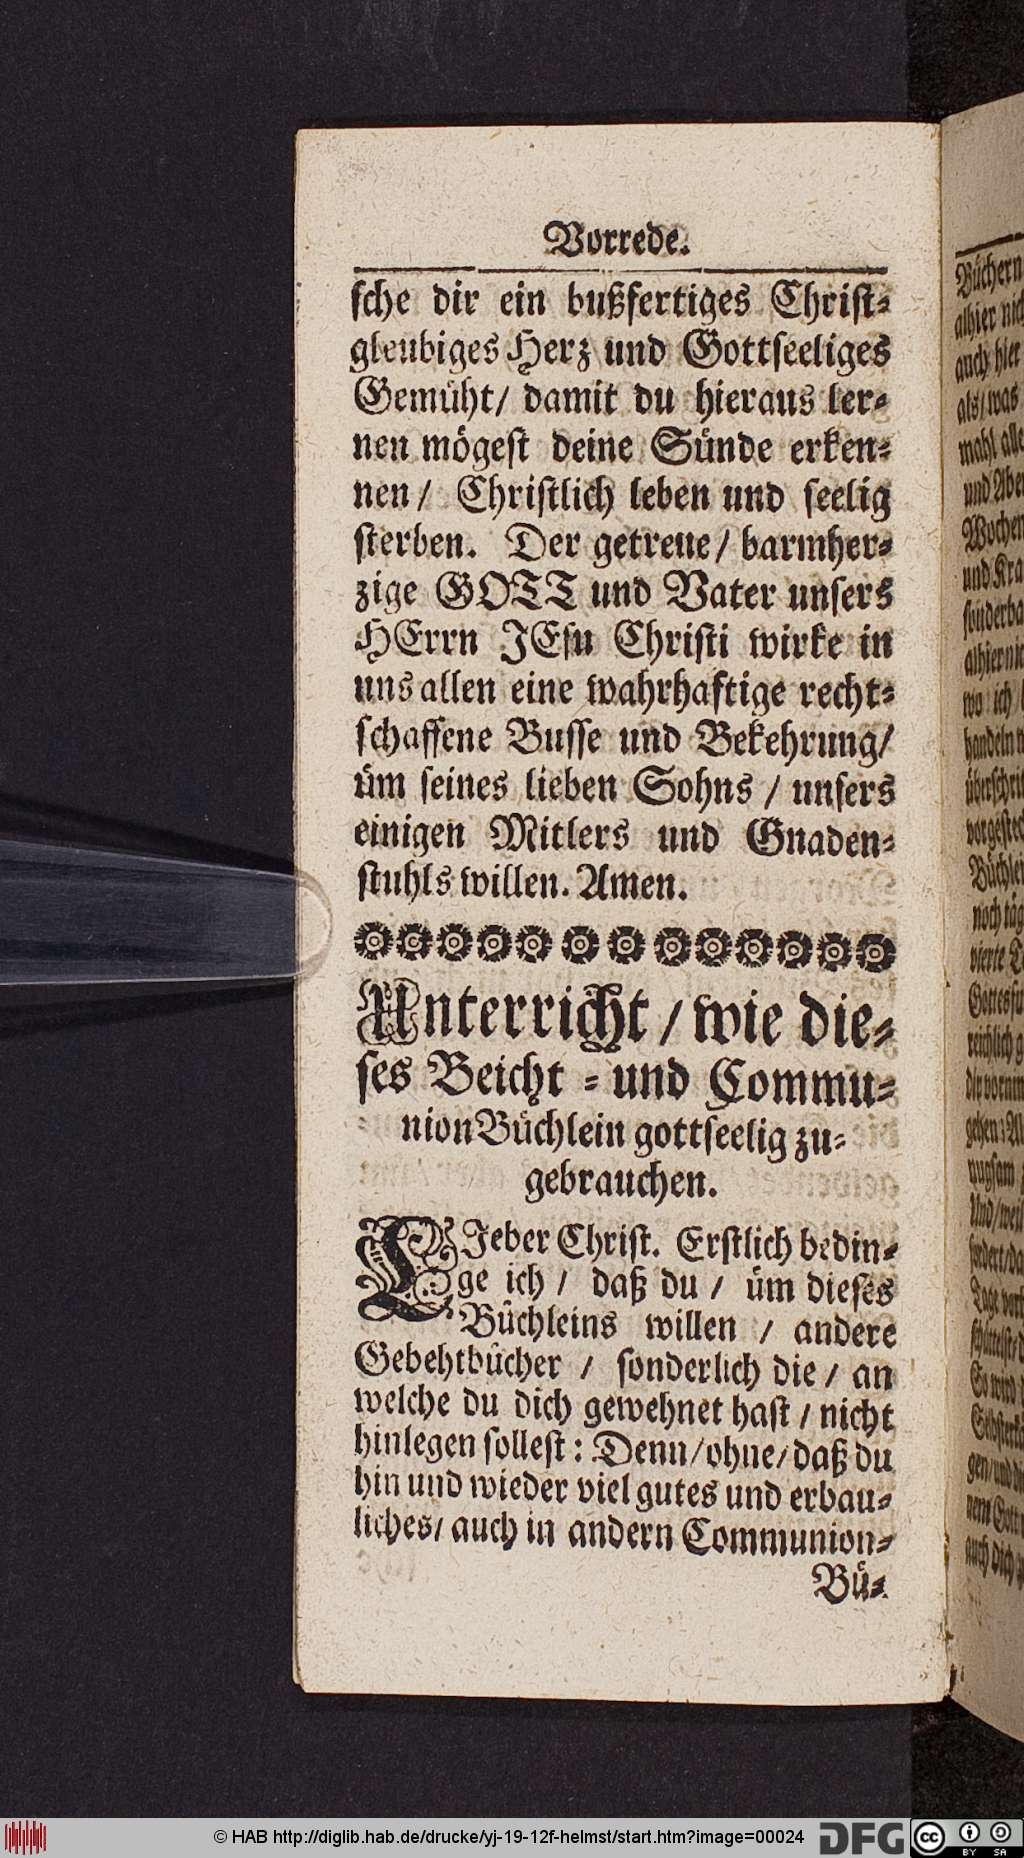 Vorrede.
ſche dir ein bußfertiges Chriſt⸗
gleubiges Herz und Gottſeeliges
Gemüht/ damit du hieraus ler⸗
nen mögeſt deine Sünde erken⸗
nen/ Chriſtlich leben und ſeelig
ſterben. Der getreue/ barmher⸗
zige GOTT und Vater unſers
HErrn JEſu Chriſti wirke in
uns allen eine wahrhaftige recht⸗
ſchaffene Buſſe und Bekehrung/
üm ſeines lieben Sohns / unſers
einigen Mitlers und Gnaden⸗
ſtuhls willen. Amen.
Unterricht / wie die⸗
ſes Beicht ⸗ und Commu⸗
nion Büchlein gottſeelig zu⸗
gebrauchen.
LJeber Chriſt. Erſtlich bedin⸗
ge ich / daß du / üm dieſes
Büchleins willen / andere
Gebehtbücher / ſonderlich die / an
welche du dich gewehnet haſt / nicht
hinlegen ſolleſt: Denn/ ohne/ daß du
hin und wieder viel gutes und erbau⸗
liches/ auch in andern Communion⸗
Bü⸗
Büchern
auch hier
als/ was
und Kra
wo ich
© HAB http://diglib.hab.de/drucke/yj-19-12f-helmst/start.htm?image=00024
DFG
cc
BY SA